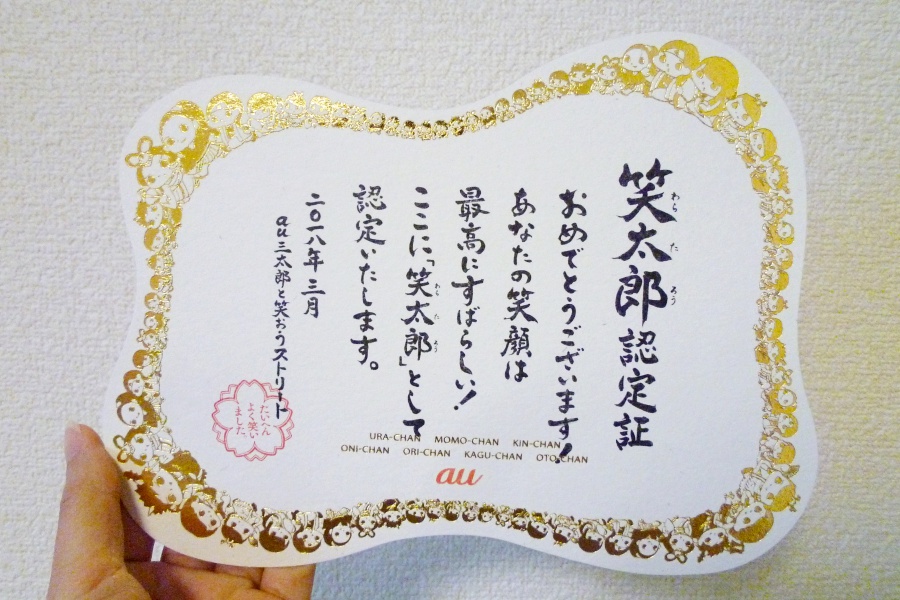 笑太郎認定証
わらたろう
おめでとうございます！
あなたの笑顔は
最高にすばらしい！
ここに「笑太郎」として
わらたろう
認定いたします。
二〇一八年三月
au三太郎と笑おうストリート
たいへん
よく笑い
ました
URA-CHAN MOMO-CHAN KIN-CHAN
ONI-CHAN ORI-CHAN KAGU-CHAN OTO-CHAN
au